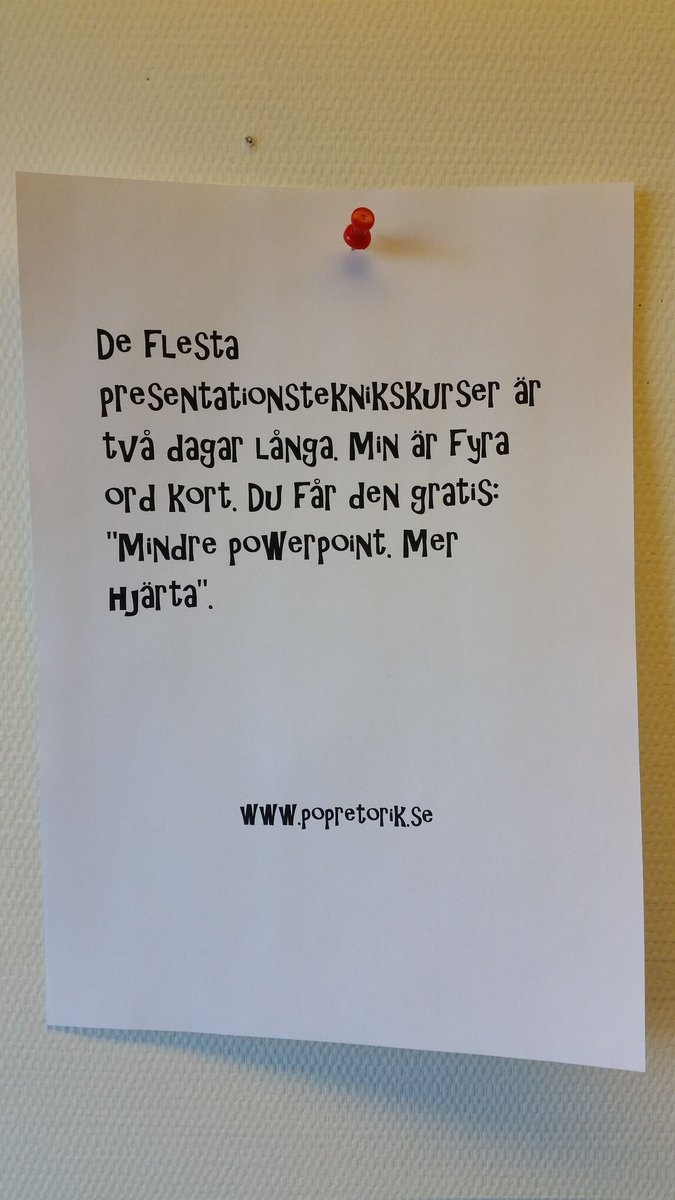 De flesta
presentationsteknikskurser är
två dagar långa. Min är fyra
ord kort. Du får den gratis:
"Mindre powerpoint. Mer
Hjärta".
www.popretorik.se